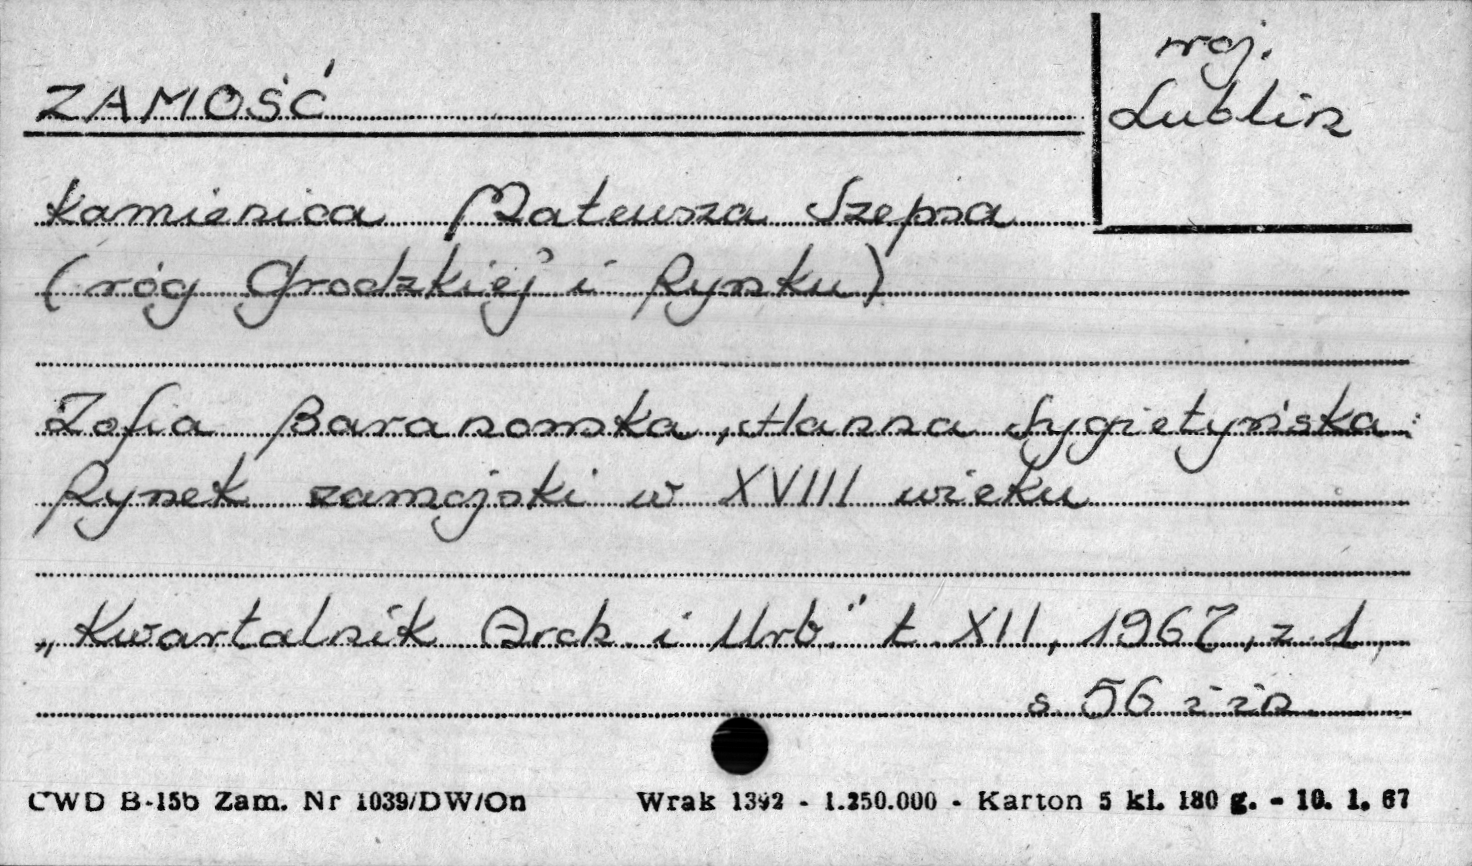 ZAMOŚĆ
woj.
Lublin
kamienica Mateusza Szepsa
(róg Grodzkiej i Rynku)
Zofia Baranowska, Hanna Sygietyńska:
Rynek zamojski w XVIII wieku
„Kwartalnik Arch i Urb" t. XII, 1967, z 1,
s. 56 i in.
CWD B-15b Zam. Nr 1039/DW/On Wrak 1392 - 1.250.000 - Karton 5 kl. 180 g. - 10. 1. 67